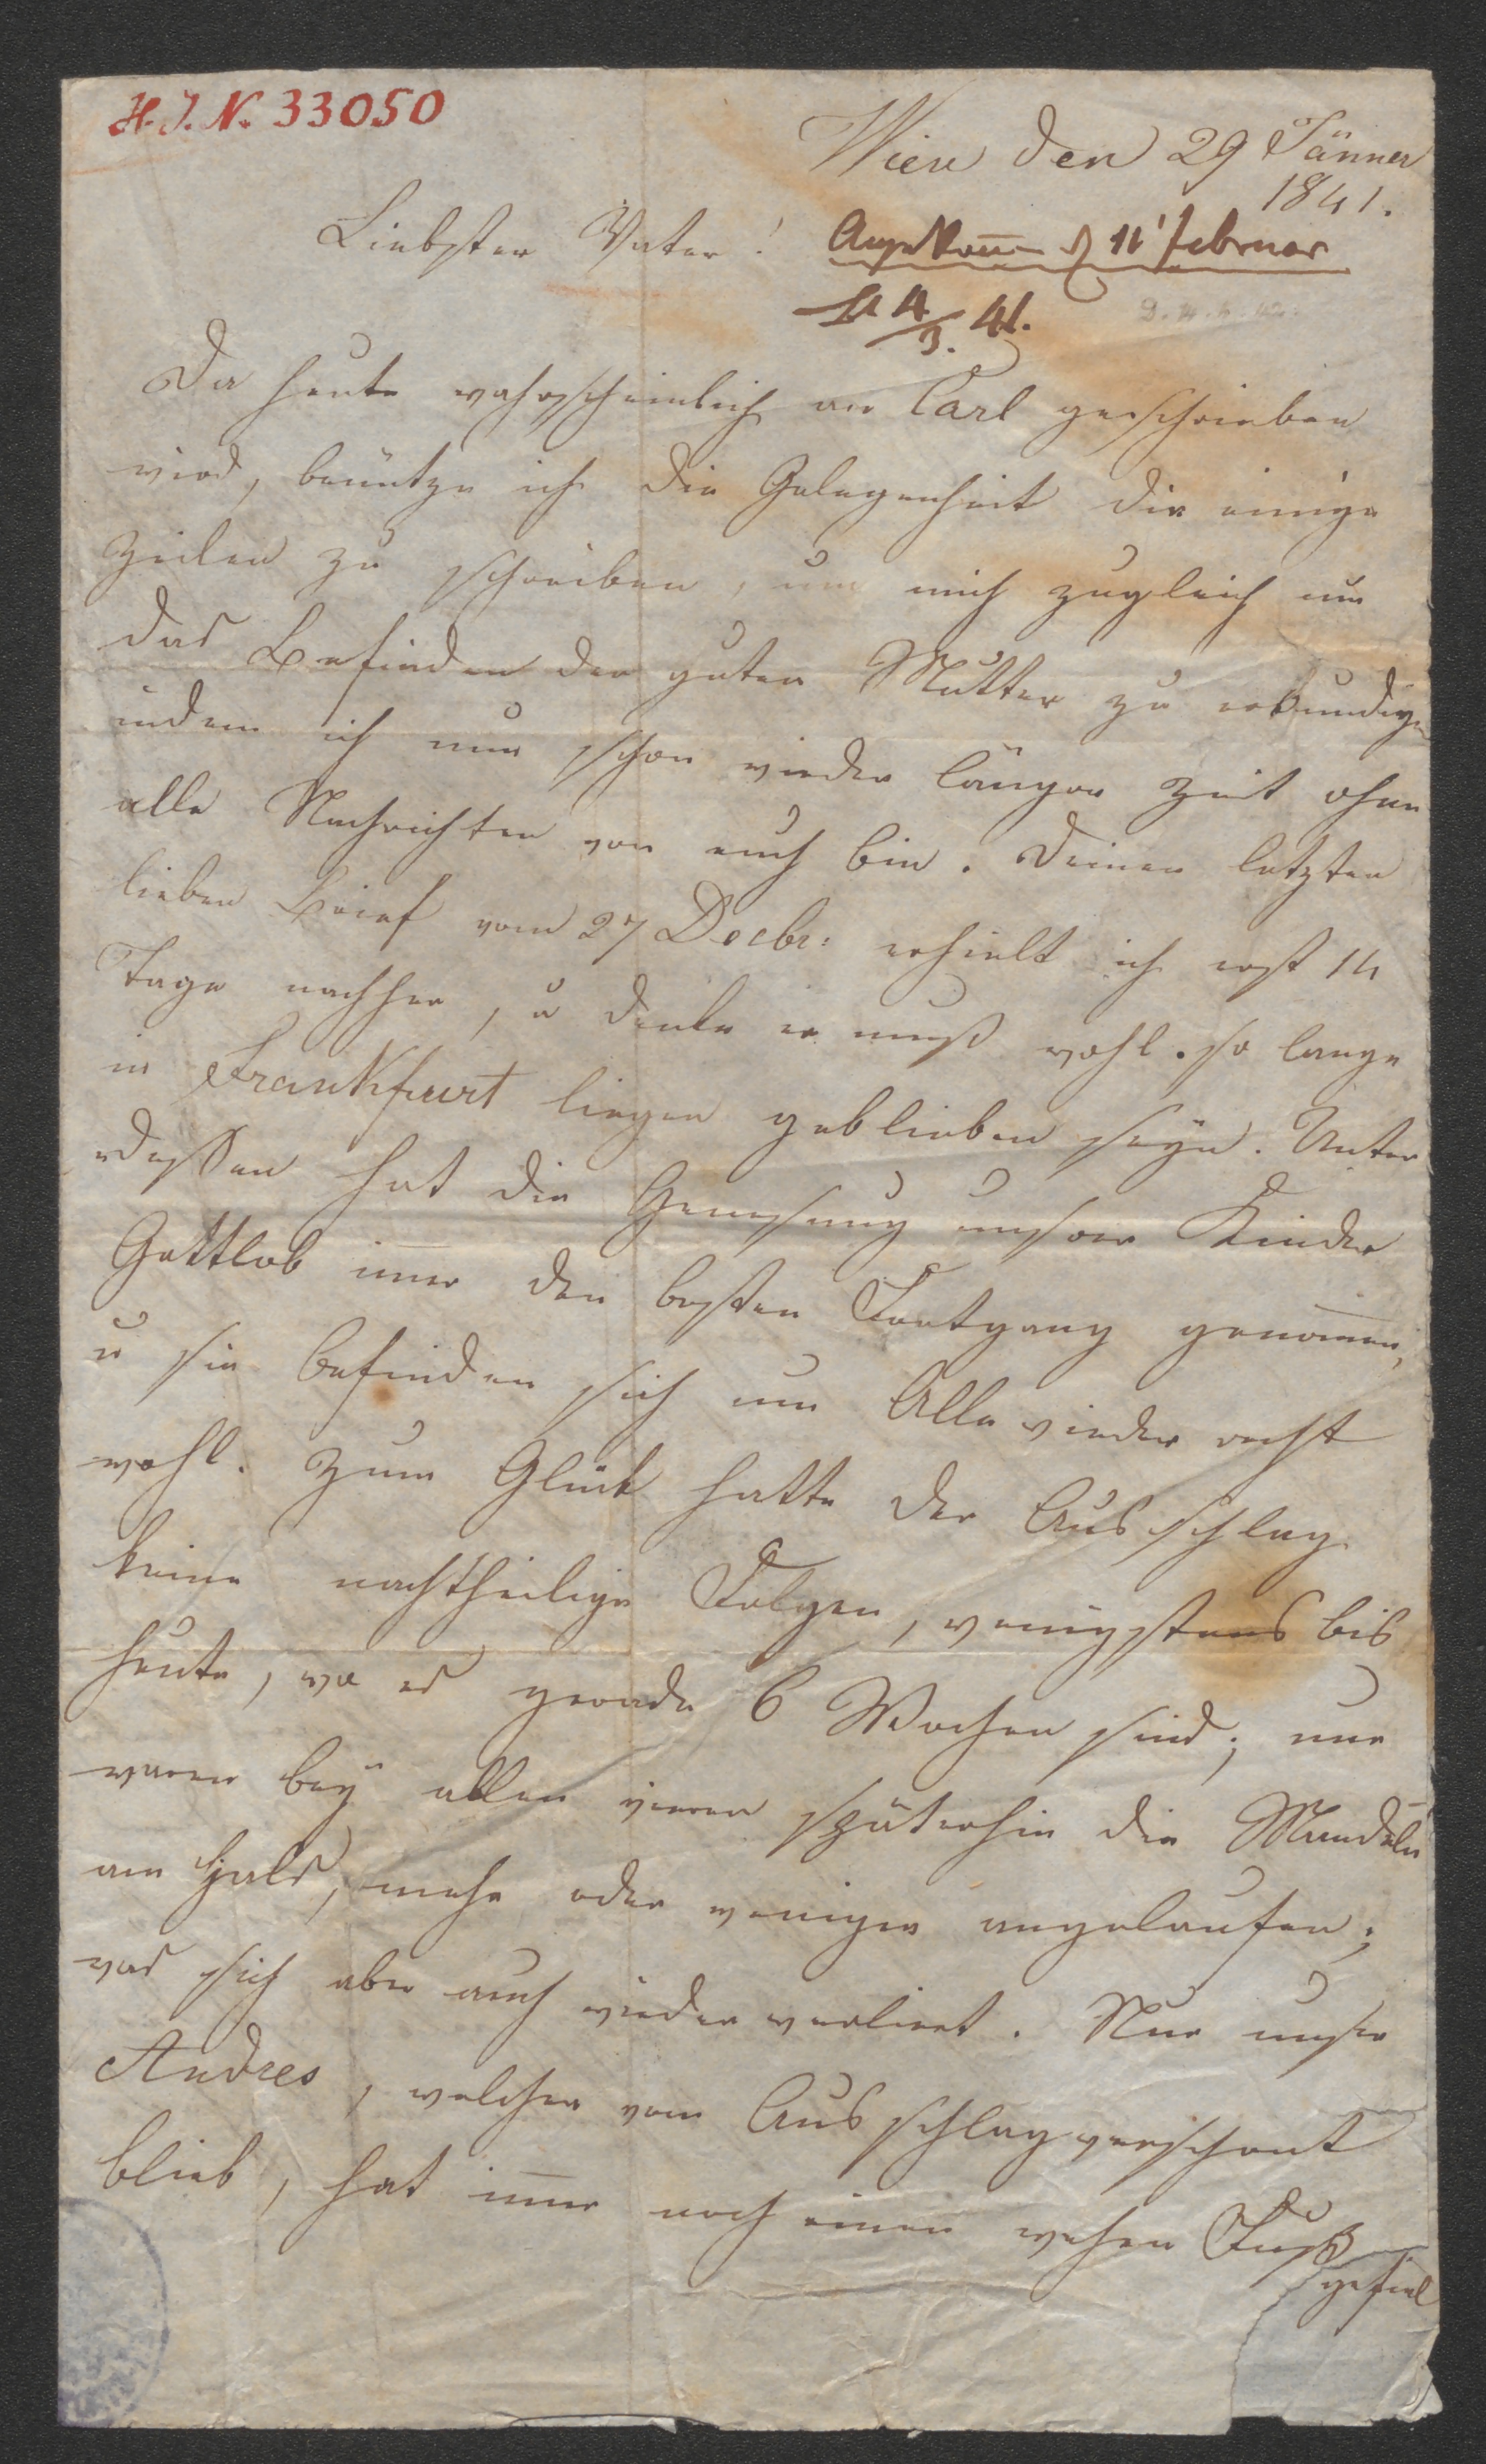 H. I. N. 33050
Wien den 29 Jänner
1841.
Liebster Vater!
11' Februar
4/3. 41.
Da heute wahrscheinlich an Carl geschrieben
wird, benütze ich die Gelegenheit dir einige
Zeilen zu schreiben, um mich zugleich um
das Befinden der guten Mutter zu erkundigen
indem ich nun schon wieder länger Zeit ohne
alle Nachrichten von euch bin. Deinen letzten
lieben Brief vom 27 Decbr: erhielt ich erst 14
Tage nachher, u denke er muß wohl so lange
in Frankfurt liegen geblieben seyn. Unter
dessen hat die Genesung unsrer Kinder
Gottlob im̅er den besten Fortgang genom̅en,
u sie befinden sich nun Alle wieder recht
wohl. Zum Glück hatte der Ausschlag
keine nachtheilige Folgen, wenigstens bis
heute, wo es gerade 6 Wochen sind; nur
waren bey allen vieren späterhin die Mandeln
am Hals, mehr oder weniger angelaufen;
was sich aber auch wieder verliert. Nur unser
Andres, welcher vom Ausschlag verschont
blieb, hat im̅er noch einen wehen Fuß